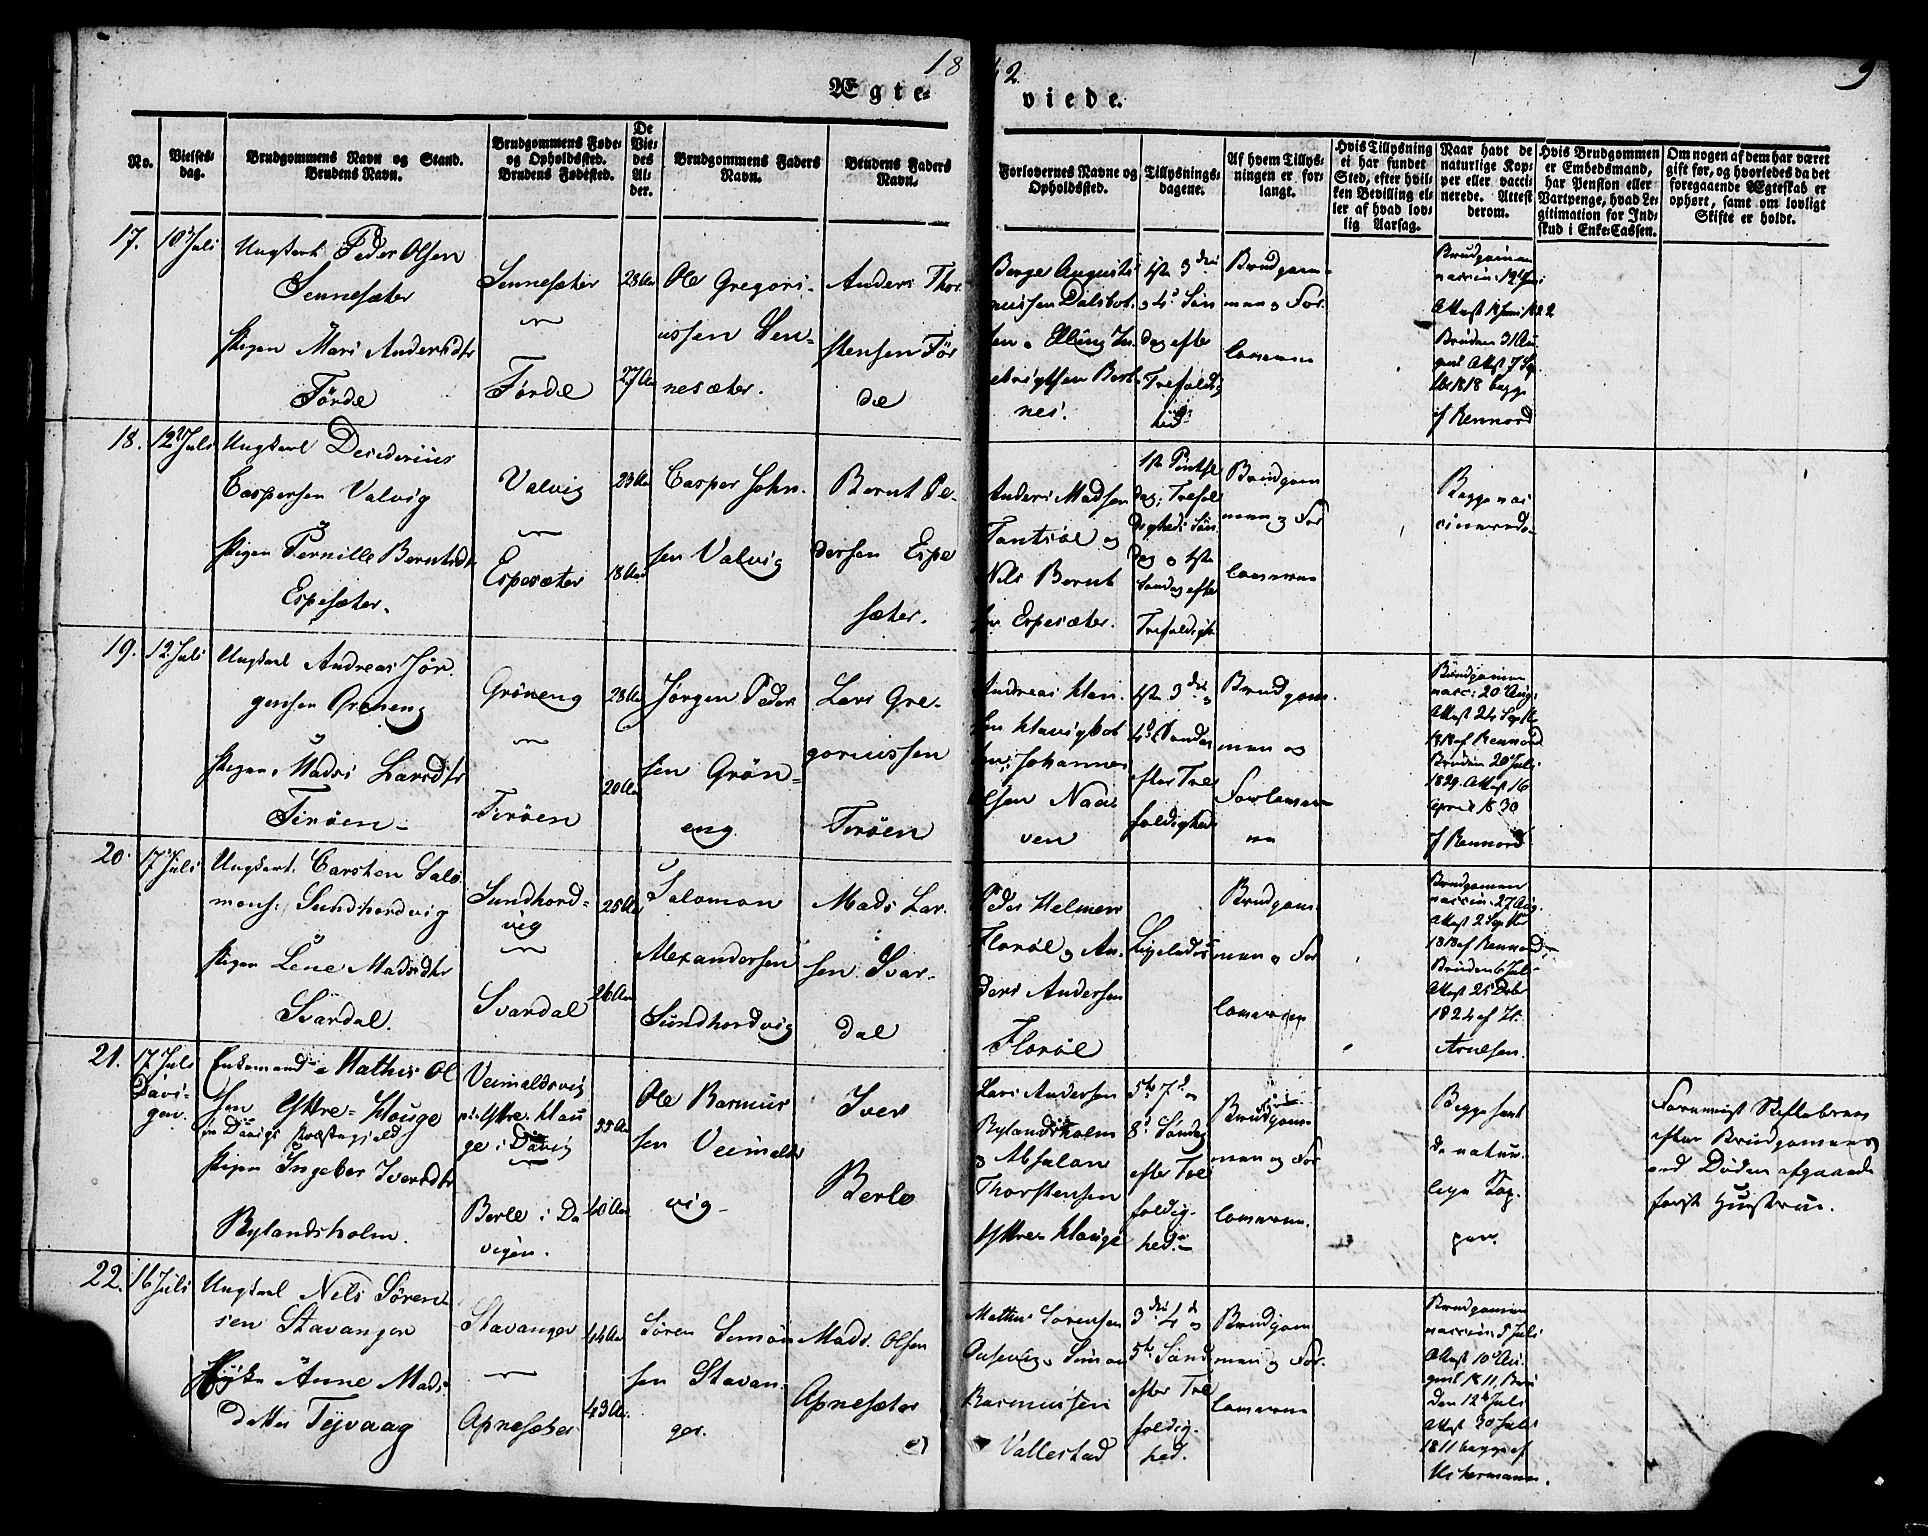 18 42. 9
Ægte- viede.
No.
Vielses-
dag.
Brudgommens Navn og Stand.
Brudens Navn.
Brudgommens Føde-
og Opholdssted.
Brudens Fødested.
De
Vie-
des
Al-
der.
Brudgommens Faders
Navn.
Brudens Faders
Navn.
Forlovernes Navne og
Opholdssted.
Tillysnings-
dagene.
Af hvem Tillys-
ningen er for-
langt.
Hvis Tillysning
ei har fundet
Sted, efter hvil-
ken Bevilling el-
ler af hvad lov-
lig Aarsag.
Naar havt de
naturlige Kop-
per eller vacci-
nerede. Attest
derom.
Hvis Brudgommen
er Embedsmand,
har Pension eller
Vartpenge, hvad Le-
gitimation for Ind-
skud i Enke-Cassen.
Om nogen af dem har været
gift før, og hvorledes da det
foregaaende Ægteskab er
ophørt, samt om lovligt
Skifte er holdt.
17.
10 Juli
Ungkarl Peder Olsen
Sennesæter
Pigen Mari Andersdtr
Förde
Sennesæter
Förde
28 Aar
27 Aar
Ole Gregori-
ussen Sen-
nesæter.
Anders Thor
stensen För
de
Berge Augusti
nussen Dalsbot
ten Elling In
gebrigtsen Bort
nes.
3die
4de Søn
dag efter
Trefoldig
hed
Brudgom-
men og For
loverne
Brudgommen
vaccin: 19 Juni
Attest 19 Juni 1822
Bruden 31 Au
gust Attest 7 Sep
tbr 1818 begge
af Rennord
18.
12 Juli
Ungkarl Desiderius
Caspersen Valvig
Pigen Pernille Berntsdtr
Espesæter.
Valvig
Espesæter
23 Aar
18 Aar
Casper John-
sen Valvig
Bernt Pe-
dersen Espe
sæter.
Anders Madsen
Tantsöe og
Nils Bernt
sen Espesæter.
1ste Pintse
dag, Trefol
digheds Søn
dag og 1ste
Søndag efter
Trefoldigh.
Brudgom
men og For
loverne
Begge vac
cinerede
19.
12 Juli
Ungkarl Andreas Jør
gensen Gröneng
Pigen Madsi Larsdtr
Teröen
Gröneng
Teröen
28 Aar
20 Aar
Jörgen Peder
sen Grön-
eng
Lars Gre-
goriussen
Teröen
Andreas Han
sen Havigbot
ten, Johannes
Olsen Naas
ven
3die
4de Søndag
efter Tre
foldighed
Brudgom
men og
Forlover-
ne
Brudgommen
vacc: 20 Aug:
Attest 24 Septbr
1818 af Rennord
Bruden 20 Juli
1829. Attest 16
April 1830
af Rennord
20.
17 Juli
Ungkarl Carsten Salo
mons: Sundhordvig
Pigen Lene Madsdtr
Svardal.
Sundhord-
vig
Svardal
25 Aar
26 Aar
Salomon
Alexandersen
Sundhordvig
Mads Lar-
sen Svar-
dal
Peder Helmers
Floröe og An
ders Andersen
Floröe
Ligeledes
Brudgom
men og For
loverne
Brudgommen
vaccin: 27 Aug.
Attest 2 Septbr
1818 af Rennord
Bruden 6 Juli
Attest 25 Octbr
1824 af Hr.
Arnesen.
21.
17 Juli
Davi-
gen.
Enkemand Mathis Ol
sen Yttre-Hauge
fra Davigs Præstegjeld
Pigen Ingeber Iversdtr
Rylandsholm.
Veimaldsvig
pt: Yttre Hau
ge i Davig
Berle i Da
vigen.
35 Aar
40 Aar
Ole Rasmus
sen Veimalds
vig
Iver
Berle
Lars Andersen
Rylandsholm
og Absalon
Thorstensen
Yttre Hauge
5te 7de og
8de Søndag
efter Tre
foldig-
hed.
Brudgom
men og For
loverne.
Begge havt
de natur-
lige Kop-
per.
Forevist Skiftebrev
efter Brudgommens
ved Døden afgaaede
første Hustrue.
22.
16 Juli
Ungkarl Nels Sören-
sen Stavanger
Anne Mads
datter Tejvaag
Stavanger
Apnesæter
44 Aar
43 Aar
Sören Simon
sen Stavan
ger.
Mads Olsen
Apnesæter
Mathias Sörensen
Simon
Rasmussen
Vallestad
3die 4de og
5te Sønd
efter Tre
foldig-
hed.
Brudgom
men og For
loverne
Brudgommen
vaccin: 5 Juli
Attest 10 Au
gust 1811, Bru
den 12te Juli
Attest 30 Juli
1811 begge af
Uchermann.